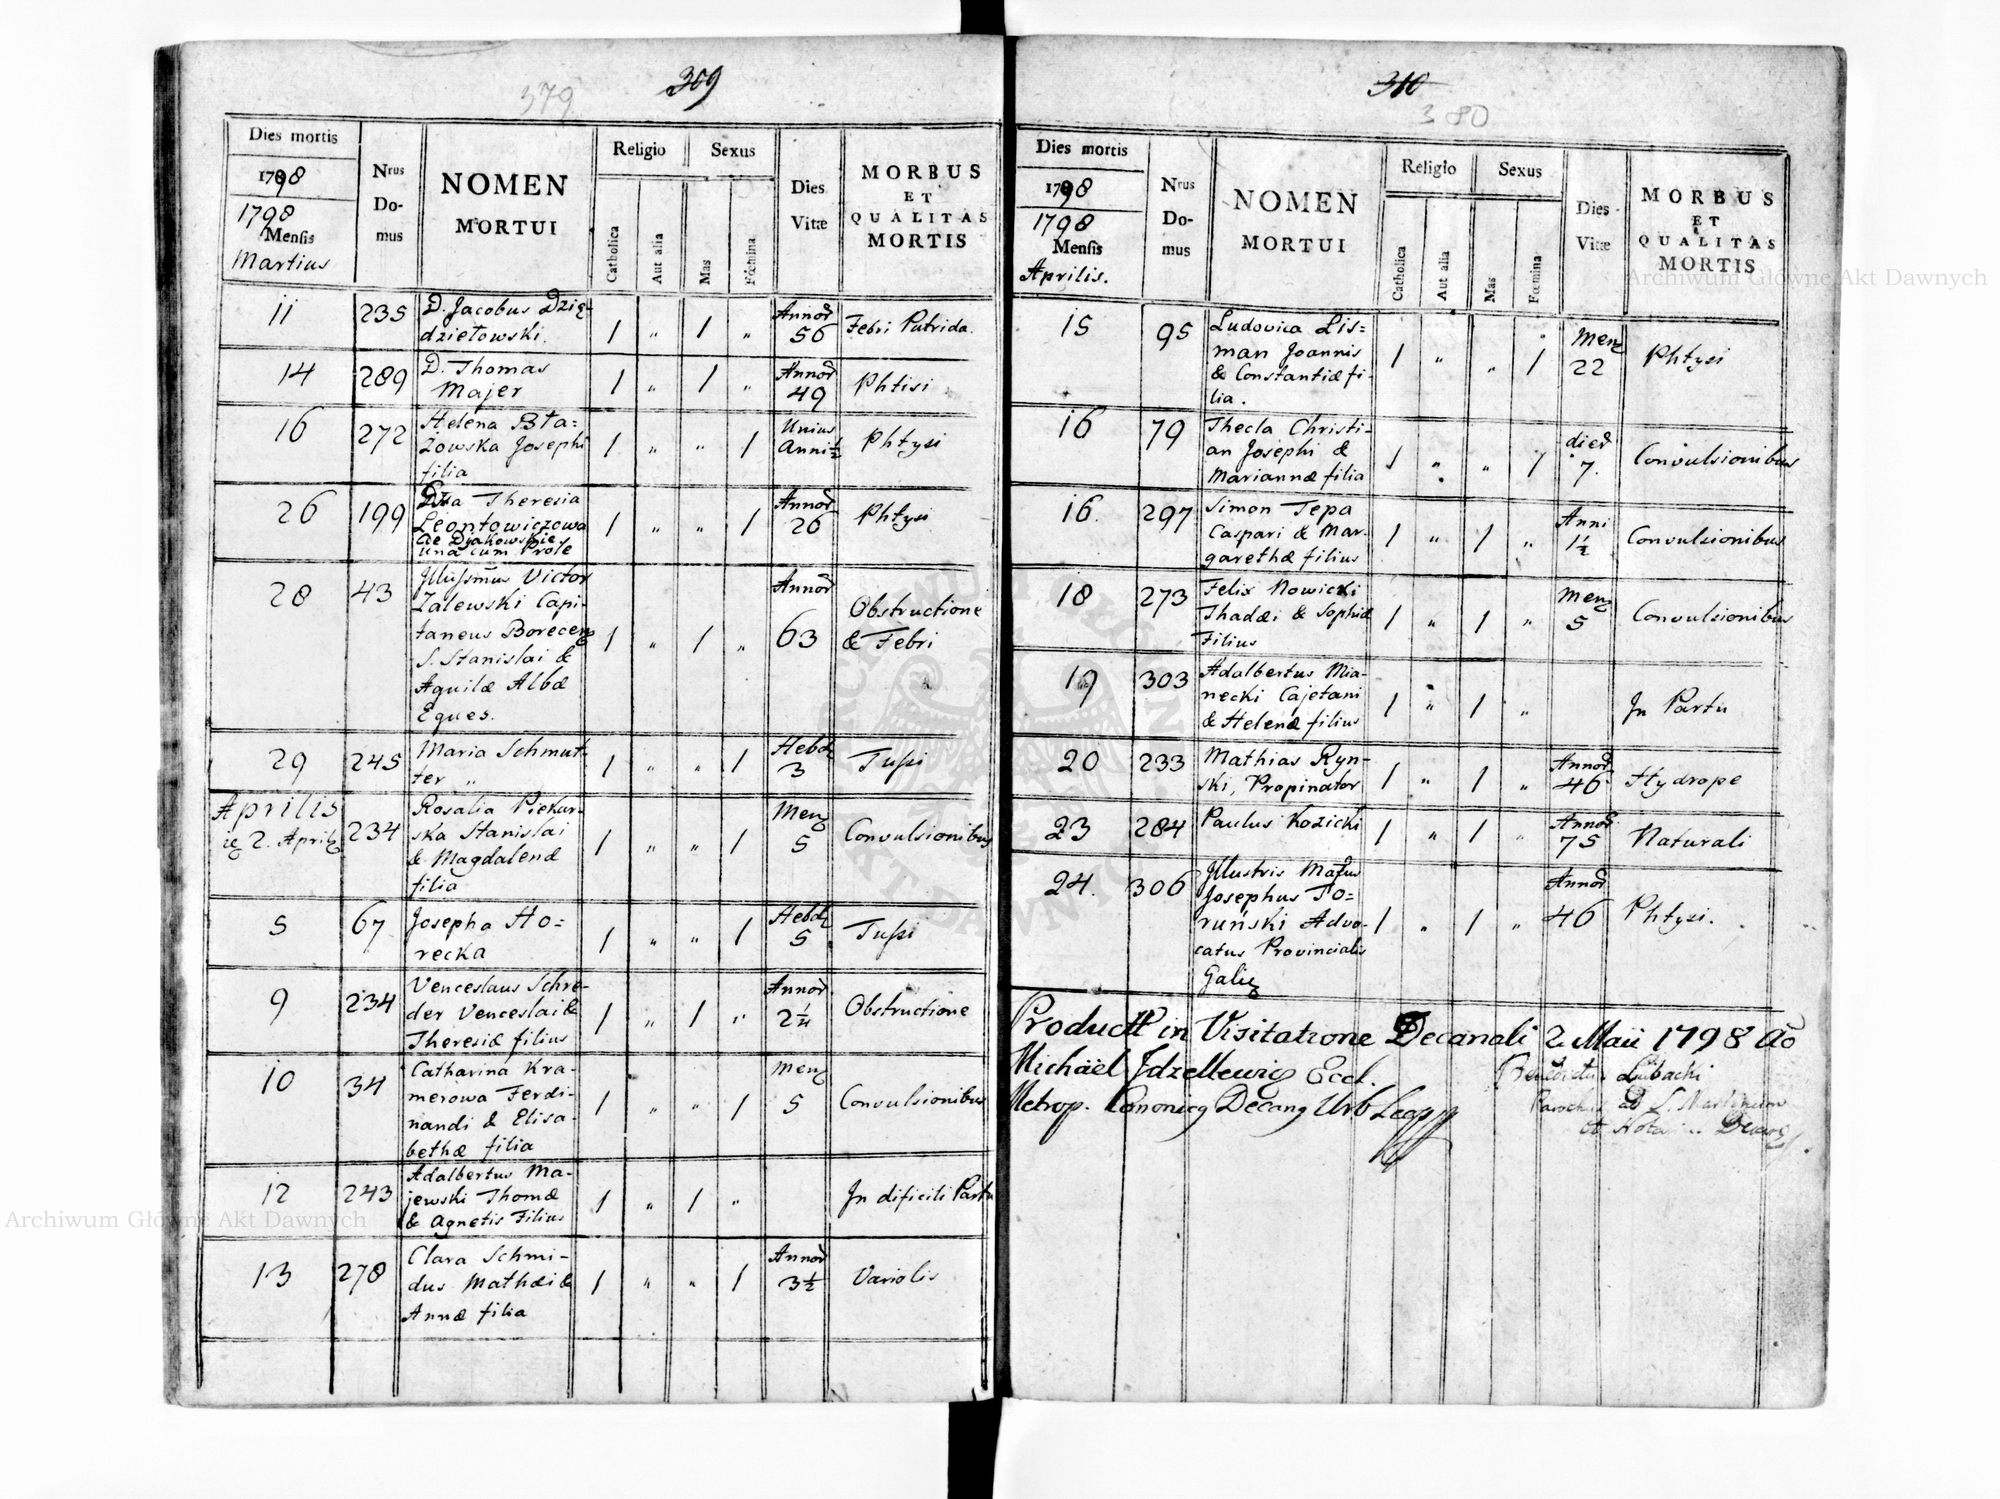 309
379
Dies mortis
1798
1798
Mensis
Martius
Nrus
Do-
mus
NOMEN
MORTUI
Religio
Sexus
Catholica
Aut alia
Mas
Fœmina
Dies
Vitæ
MORBUS
ET
QUALITAS
MORTIS
11 235 D. Jacobus
dzietowski. 1 „ 1 „ Annor 56 Febri Putrida.
14 289 D. Thomas
Majer 1 „ 1 „ Annor 49 Phtisi
16 272 Helena Bła=
żowska Josephi
filia 1 „ „ 1 Unius Anni ½ Phtysi
26 199 Theresia
Leontowiczowa
de Dyakowskie
una cum Prole 1 „ „ 1 Annor 26 Phtysi
28 43 Jllussmus Victor
Zalewski Capi-
taneus Borecens
S. Stanislai &
Aquilæ Albæ
Eques. 1 „ 1 „ Annor 63 Obstructione
& Febri
29 245 Maria Schmut-
ter „ 1 „ „ 1 Hebd 3 Tussi
Aprilis
2. Aprils 234 Rosalia Piekar-
ska Stanislai
& Magdalenæ
filia 1 „ „ 1 Mens 5 Convulsionibus
5 67 Josepha Ho=
recka 1 „ „ 1 Hebd 5 Tussi
9 234 Venceslaus Schre-
der Venceslai &
Theresiæ filius 1 „ 1 „ Annor 2¼ Obstructione
10 34 Catharina Kra-
merowa Ferdi-
nandi & Elisa-
bethæ filia 1 „ „ 1 Mens 5 Convulsionibus
12 243 Adalbertus Ma-
jewski Thomæ
& Agnetis Filius 1 „ 1 „ Jn dificili Partu
13 278 Clara Schmi-
dus Mathæi &
Annæ filia 1 „ „ 1 Annor 3½ Variolis
310
380
Dies mortis
1798
1798
Mensis
Aprilis.
Nrus
Do-
mus
NOMEN
MORTUI
Religio
Sexus
Catholica
Aut alia
Mas
Fœmina
Dies
Vitæ
MORBUS
ET
QUALITAS
MORTIS
15 95 Ludovica Lis=
man Joannis
& Constantiæ fi-
lia. 1 „ „ 1 Mens 22 Phtysi
16 79 Thecla Christi-
an Josephi &
Mariannæ filia 1 „ „ 1 dier 7. Convulsionibus
16. 297 Simon Tepa
Caspari & Mar-
garethæ filius 1 „ 1 „ Anni 1½ Convulsionibus
18 273 Felix Nowicki
Thadæi & Sophiæ
Filius 1 „ 1 „ Mens 5 Convulsionibus
19 303 Adalbertus Mia-
necki Cajetani
& Helenæ filius 1 „ 1 „ Jn Partu
20 233 Mathias Ryn-
ski, Propinator 1 „ 1 „ Annor 46 Hydrope
23 284 Paulus Kozicki 1 „ 1 „ Annor 75 Naturali
24. 306 Jllustris Mafus
Josephus To=
ruński Advo-
catus Provincialis
Galiz 1 „ 1 „ Annor 46 Phtysi.
in Visitatione Decanali 2 Maii 1798 Ao
Michäel Eccl.
Metrop. Canonicg Decang Urb
Benedictus Lubacki
Parochus ad S. Martinum
et
Archiwum Główne Akt Dawnych
Archiwum Główne Akt Dawnych